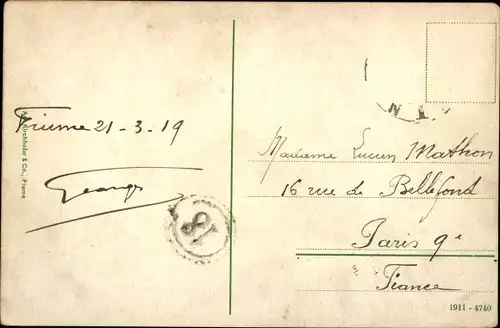 Fiume 21 - 3. 19
Georges
Kirchhofer & Co., Fiume
18
Madame Lucien Mathon
16 rue de Bellefond
Paris 9e
France
1911 - 4740